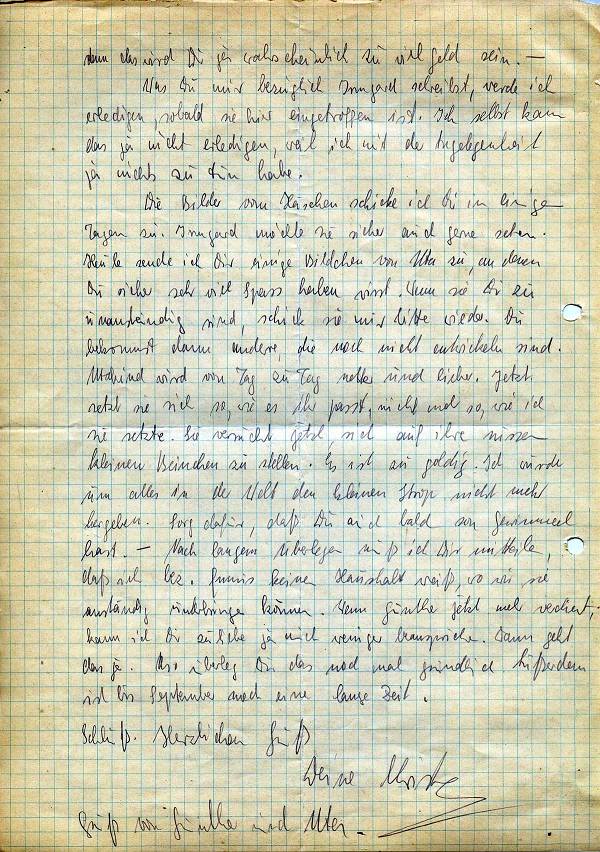 denn das wird Dir ja wahrscheinlich zu viel Geld sein. —
Was Du mir bezüglich Irmgard schreibst, werde ich
erledigen, sobald sie hier eingetroffen ist. Ich selbst kann
das ja nicht erledigen, weil ich mit der Angelegenheit
ja nichts zu tun habe.
Die Bilder vom Häschen schicke ich Dir in einigen
Tagen zu. Irmgard möchte sie sicher auch gerne sehen.
Heute sende ich Dir einige Bildchen von Uta zu, an denen
Du sicher sehr viel Spass haben wirst. Wenn sie Dir zu
unanständig sind, schick sie mir bitte wieder. Du
bekommst dann andere, die noch nicht entwickelt sind.
wird von Tag zu Tag netter und lieber. Jetzt
setzt sie sich so, wie es ihr passt, nicht mehr so, wie ich
sie setzte. Sie versucht jetzt, sich auf ihre süssen
kleinen Beinchen zu stellen. Es ist zu goldig. Ich würde
um alles in der Welt den kleinen Strop nicht mehr
hergeben. Sorg dafür, daß Du auch bald son
hast. — Nach langem Überlegen muß ich Dir mitteilen,
daß ich bez. keinen Haushalt weiß, wo wir sie
anständig unterbringen können. Wenn Günther jetzt mehr verdient,
kann ich Dir zuliebe ja auch weniger beanspruchen. Dann geht
das ja. Also überleg Dir das noch mal gründlich. Außerdem
ist bis September noch eine lange Zeit.
Schluß. Herzlichen Gruß
Deine
Gruß von Günther und Uta. —